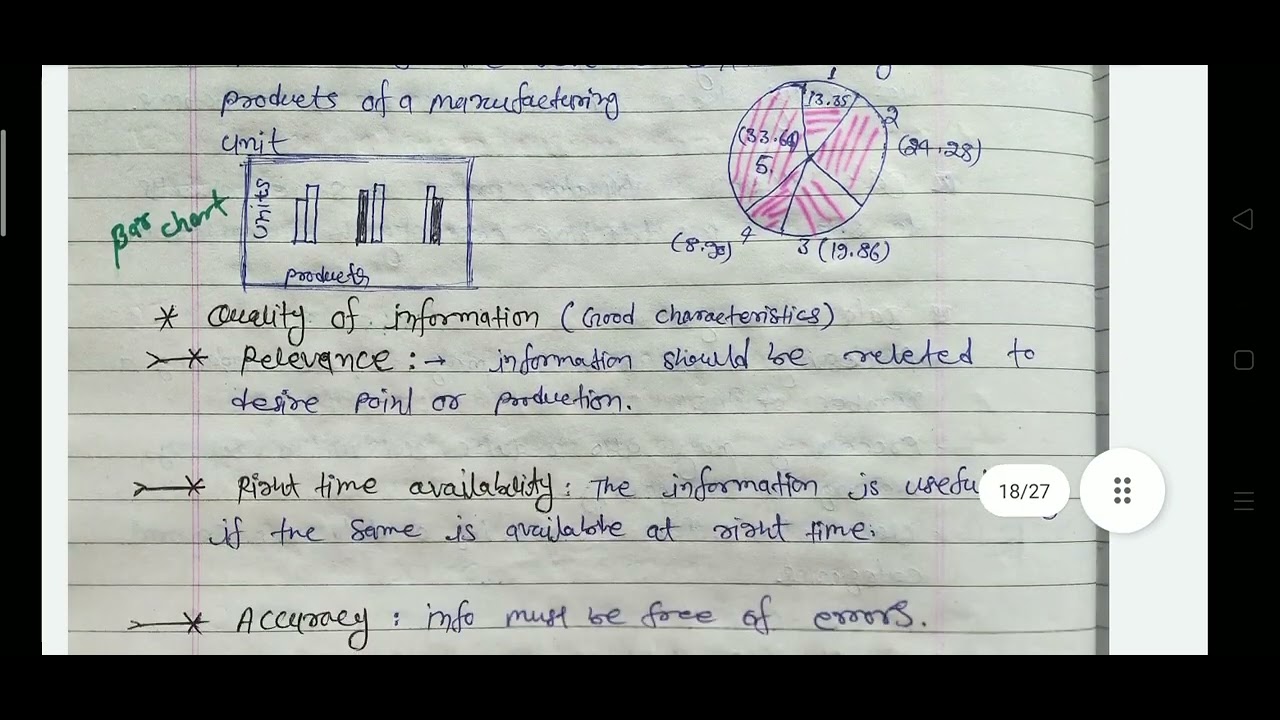 products of a manufacturing
unit
Units
products
Bar chart
1
13.35
2
(24.28)
(33.64)
5.
4
3 (19.86)
* Quality of information (Good characteristics)
* Relevance :→ information should be releted to
desire point or production.
* Right time availability : The information is usefu
if the same is available at right time.
* Accuracy : info must be free of errors.
18/27